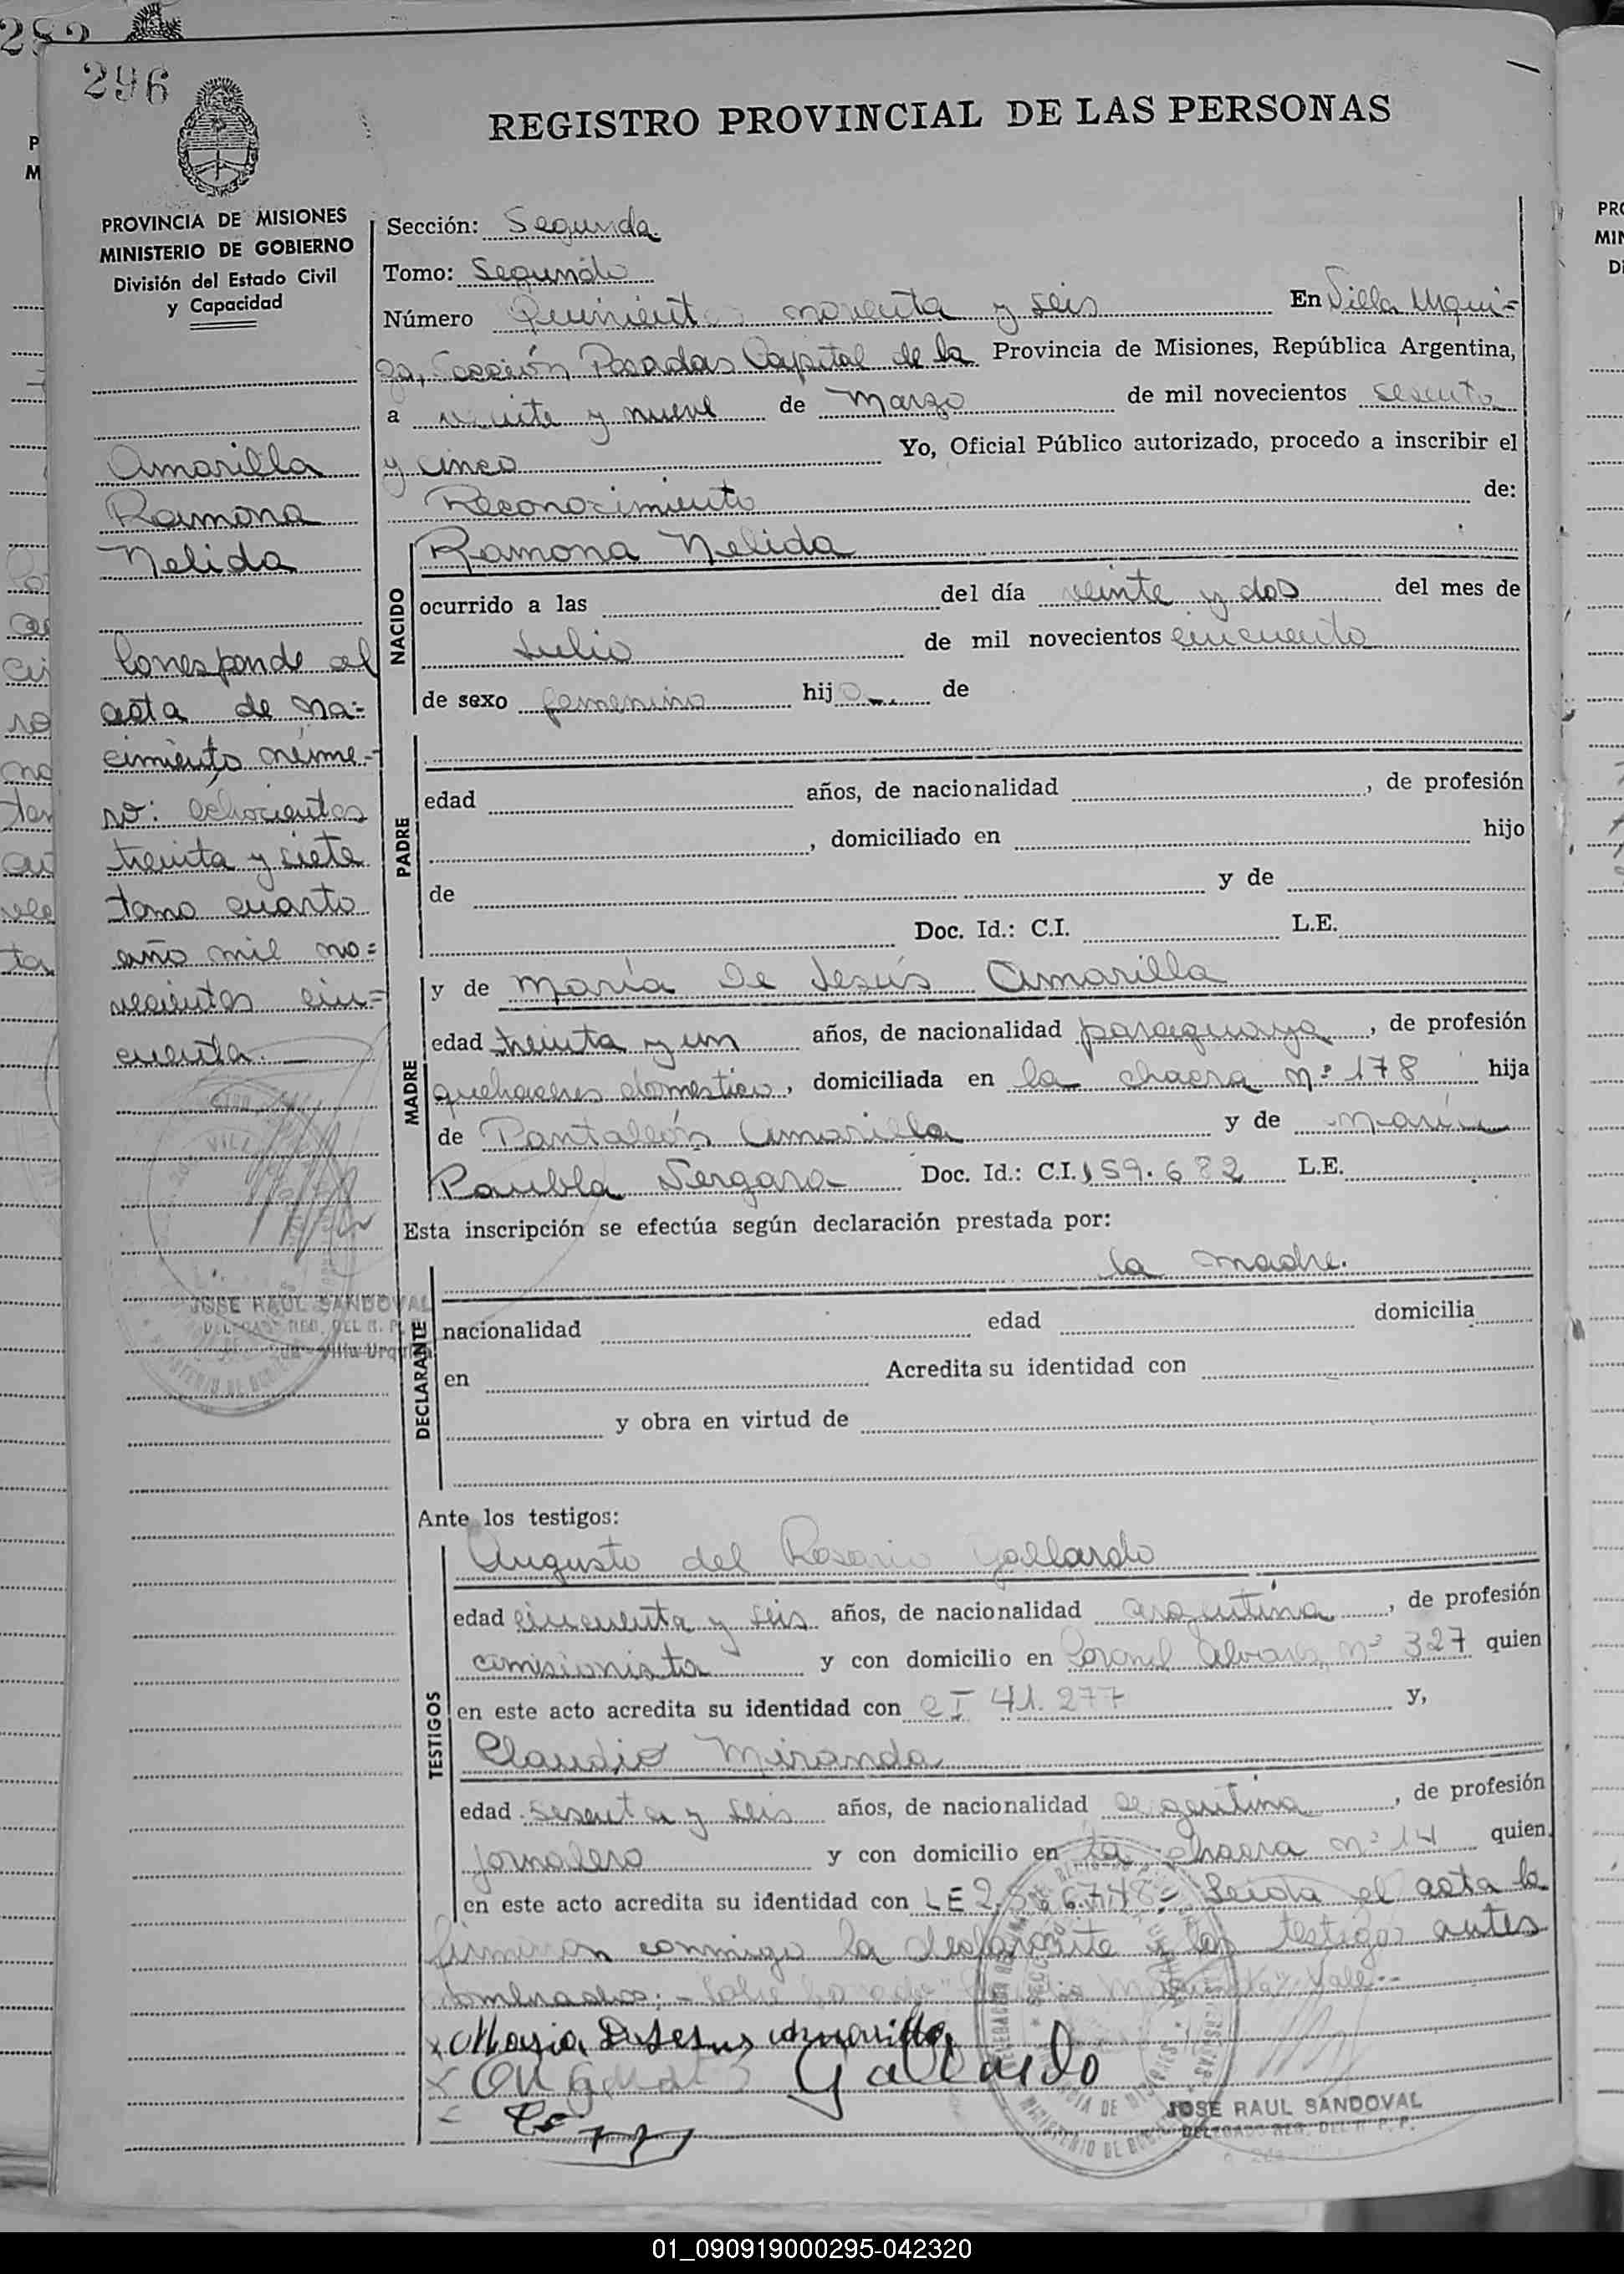 296
REGISTRO PROVINCIAL DE LAS PERSONAS
PROVINCIA DE MISIONES
MINISTERIO DE GOBIERNO
División del Estado Civil
y Capacidad
Amarilla
Ramona
Nelida
Corresponde al
acta de na-
cimiento núme-
ro: ochocientos
treinta y siete
tomo cuarto
año mil no-
vecientos cin-
cuenta.
JOSE RAUL SANDOVAL
Sección: Segunda.
Tomo: Segundo
Número Quinientos noventa y seis En Villa Urqui-
za, Sección Posadas Capital de la Provincia de Misiones, República Argentina,
a veinte y nueve de Marzo de mil novecientos sesenta
y cinco Yo, Oficial Público autorizado, procedo a inscribir el
Reconocimiento de:
NACIDO
Ramona Nelida
ocurrido a las del día veinte y dos del mes de
Julio de mil novecientos cincuenta
de sexo femenino hija de
PADRE
edad años, de nacionalidad , de profesión
, domiciliado en hijo
de y de
Doc. Id.: C.I. L.E.
MADRE
y de María De Jesús Amarilla
edad treinta y un años, de nacionalidad paraguaya, de profesión
quehaceres domestico, domiciliada en la chacra nº 178 hija
de Pantaleón Amarilla y de María
Paubla Vergara Doc. Id.: C.I. 159.682 L.E.
Esta inscripción se efectúa según declaración prestada por:
DECLARANTE
la madre.
nacionalidad edad domicilia
en Acredita su identidad con
y obra en virtud de
Ante los testigos:
TESTIGOS
Augusto del Rosario Gallardo
edad cincuenta y seis años, de nacionalidad argentina, de profesión
comisionista y con domicilio en Coronel Alvarez nº 327 quien
en este acto acredita su identidad con CI 41.277 y,
Claudio Miranda
edad sesenta y seis años, de nacionalidad argentina, de profesión
jornalero y con domicilio en la chacra nº 14 quien
en este acto acredita su identidad con LE Leida el acta la
firmaron conmigo la declarante y los testigos antes
nombrados: - Vale -
Maria De Jesus Amarilla
Gallardo
JOSE RAUL SANDOVAL
01_090919000295-042320